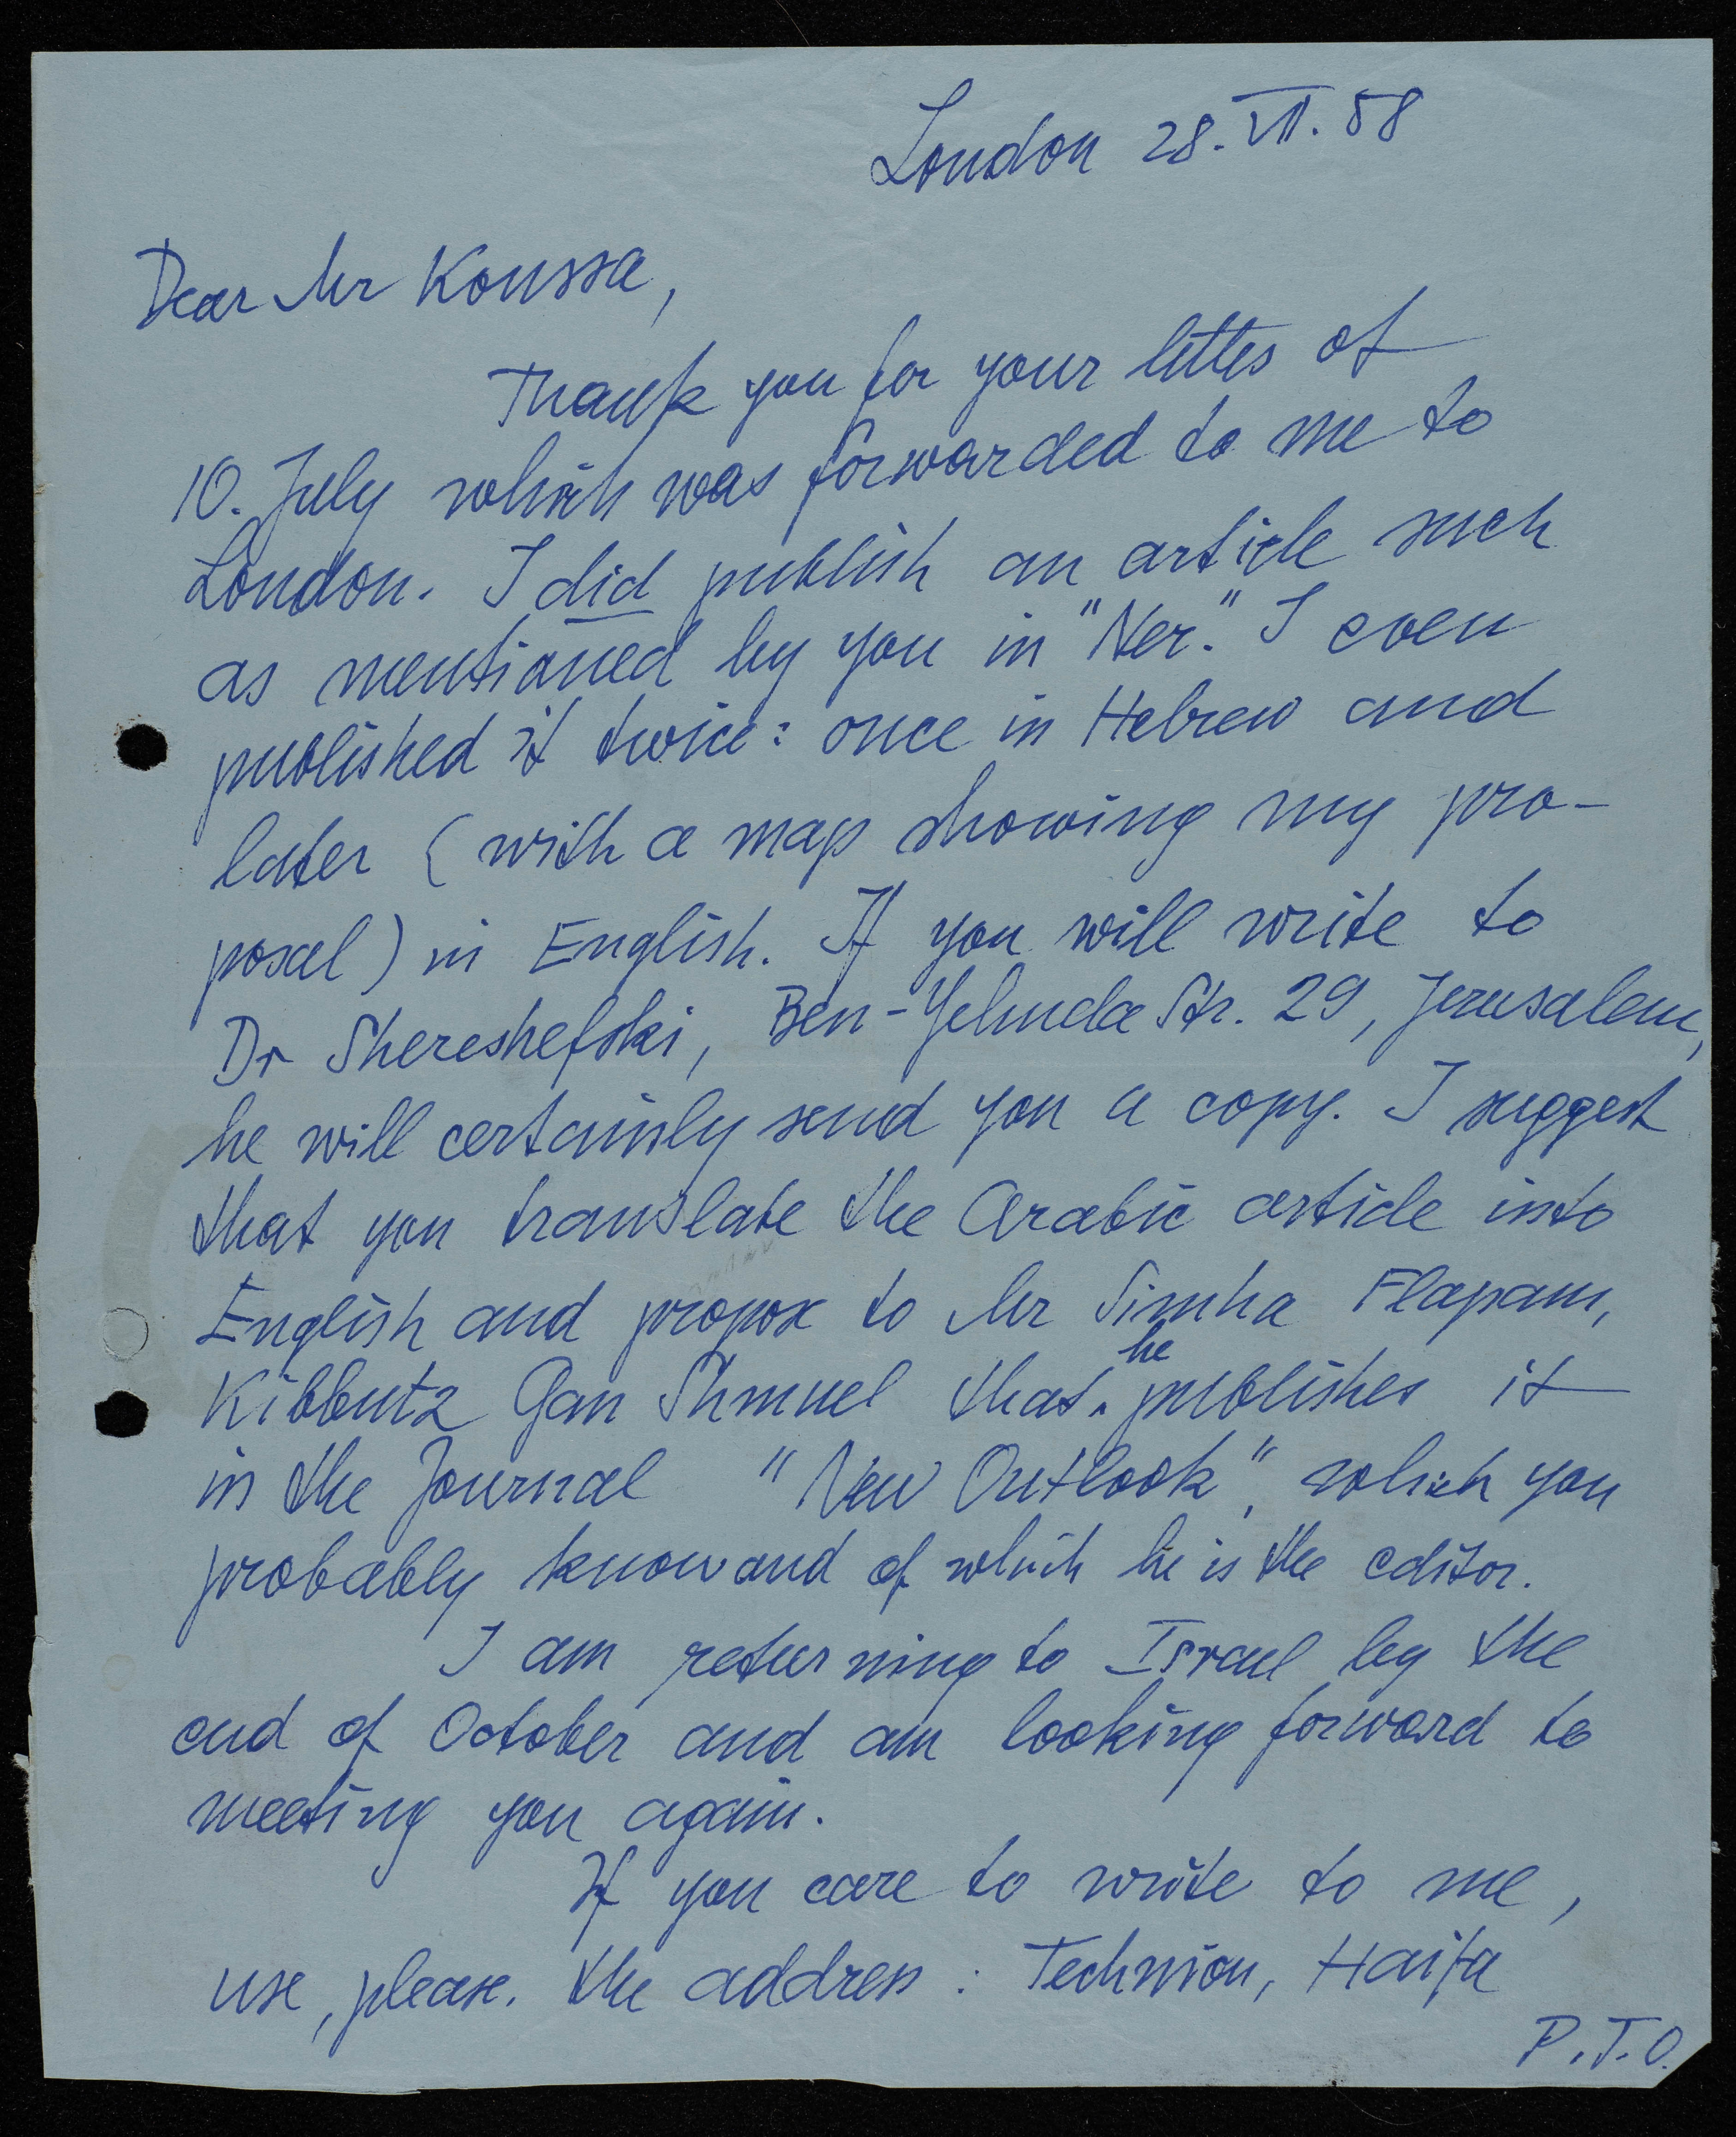 London 28. VII. 58
Dear Mr Koussa,
Thank you for your letter of
10. July which was forwarded to me to
London. I did publish an article such
as mentioned by you in "Ner." I even
published it twice: once in Hebrew and
later (with a map showing my pro-
posal) in English. If you will write to
Dr Shereshefski, Ben-Yehuda Str. 29, Jerusalem,
he will certainly send you a copy. I suggest
that you translate the Arabic article into
English and propose to Mr Simha Flapam,
Kibbutz Gan Shmuel that he publishes it
in the Journal "New Outlook", which you
probably know and of which he is the editor.
I am returning to Israel by the
end of October and am looking forward to
meeting you again.
If you care to write to me,
use, please. the address: Technion, Haifa
P.T.O.